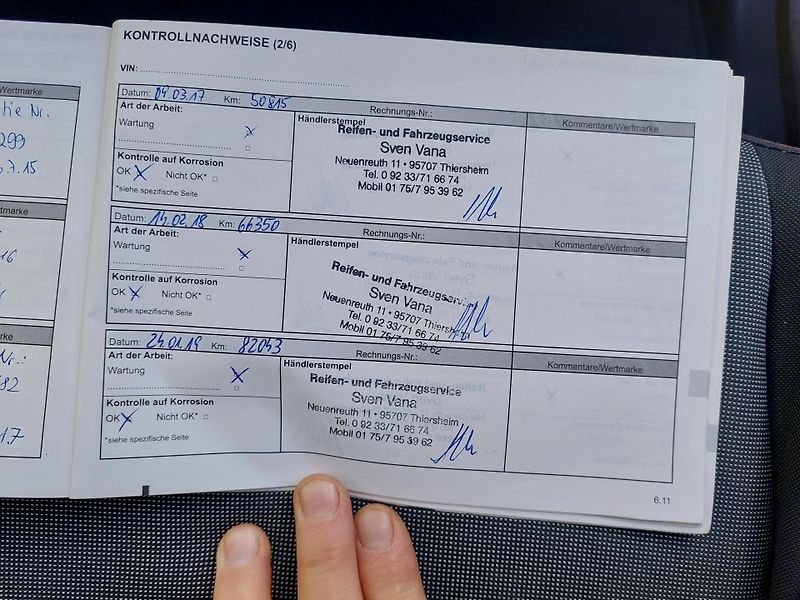 KONTROLLNACHWEISE (2/6)
VIN:
Datum: 09.03.17 Km: 50815 Rechnungs-Nr.: Kommentare/Wertmarke
Art der Arbeit: Händlerstempel
Wartung x Reifen- und Fahrzeugservice
Sven Vana
Kontrolle auf Korrosion Neuenreuth 11 • 95707 Thiersheim
OK x Nicht OK* Tel. 0 92 33/71 66 74
*siehe spezifische Seite Mobil 01 75/7 95 39 62
Datum: 14.02.18 Km: 66350 Rechnungs-Nr.: Kommentare/Wertmarke
Art der Arbeit: Händlerstempel
Wartung x Reifen- und Fahrzeugservice
Sven Vana
Kontrolle auf Korrosion Neuenreuth 11 • 95707 Thiersheim
OK x Nicht OK* Tel. 0 92 33/71 66 74
*siehe spezifische Seite Mobil 01 75/7 95 39 62
Datum: 24.01.19 Km: 82043 Rechnungs-Nr.: Kommentare/Wertmarke
Art der Arbeit: Händlerstempel
Wartung x Reifen- und Fahrzeugservice
Sven Vana
Kontrolle auf Korrosion Neuenreuth 11 • 95707 Thiersheim
OK x Nicht OK* Tel. 0 92 33/71 66 74
*siehe spezifische Seite Mobil 01 75/7 95 39 62
6.11